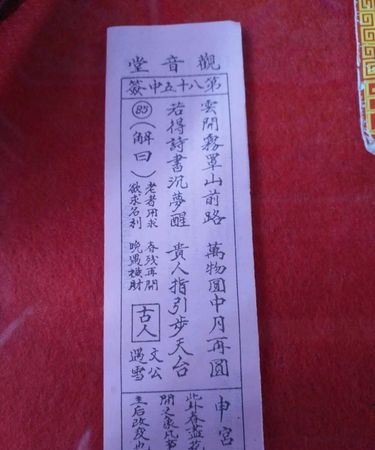 觀音堂
第八十五中簽
雲開霧罩山前路 萬物圓中月再圓
若得詩書沉夢醒 貴人指引步天台
85（解曰）
老者用求 春残再開
欲求名利 晚遇橫財
古人
文公
遇雪
申宮
此卦春
開之象凡事